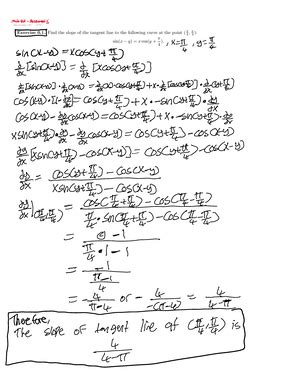 Exercise 0.1. Find the slope of the tangent line to the following curve at the point (π/4, π/4)
sin(x − y) = x cos(y + π/4) , x=π/4 , y=π/4
sin(x-y) = xcos(y+π/4)
d/dx[sin(x-y)] = d/dx[xcos(y+π/4)]
cos(x-y)·(1-dy/dx)=cos(y+π/4)+x·-sin(y+π/4)·dy/dx
cos(x-y)-dy/dx cos(x-y)=cos(y+π/4)-xsin(y+π/4)·dy/dx
xsin(y+π/4)·dy/dx-dy/dx cos(x-y)=cos(y+π/4)-cos(x-y)
dy/dx[xsin(y+π/4)-cos(x-y)]=cos(y+π/4)-cos(x-y)
dy/dx = (cos(y+π/4)-cos(x-y))/(xsin(y+π/4)-cos(x-y))
dy/dx|(π/4,π/4) = (cos(π/4+π/4)-cos(π/4-π/4))/(π/4·sin(π/4+π/4)-cos(π/4-π/4))
= (0-1)/(π/4·1-1)
= -1/(π/4-1)
= -4/(π-4) or -4/-(π-4) = 4/(4-π)
Therefore,
The slope of tangent line at (π/4,π/4) is
4/(4-π)